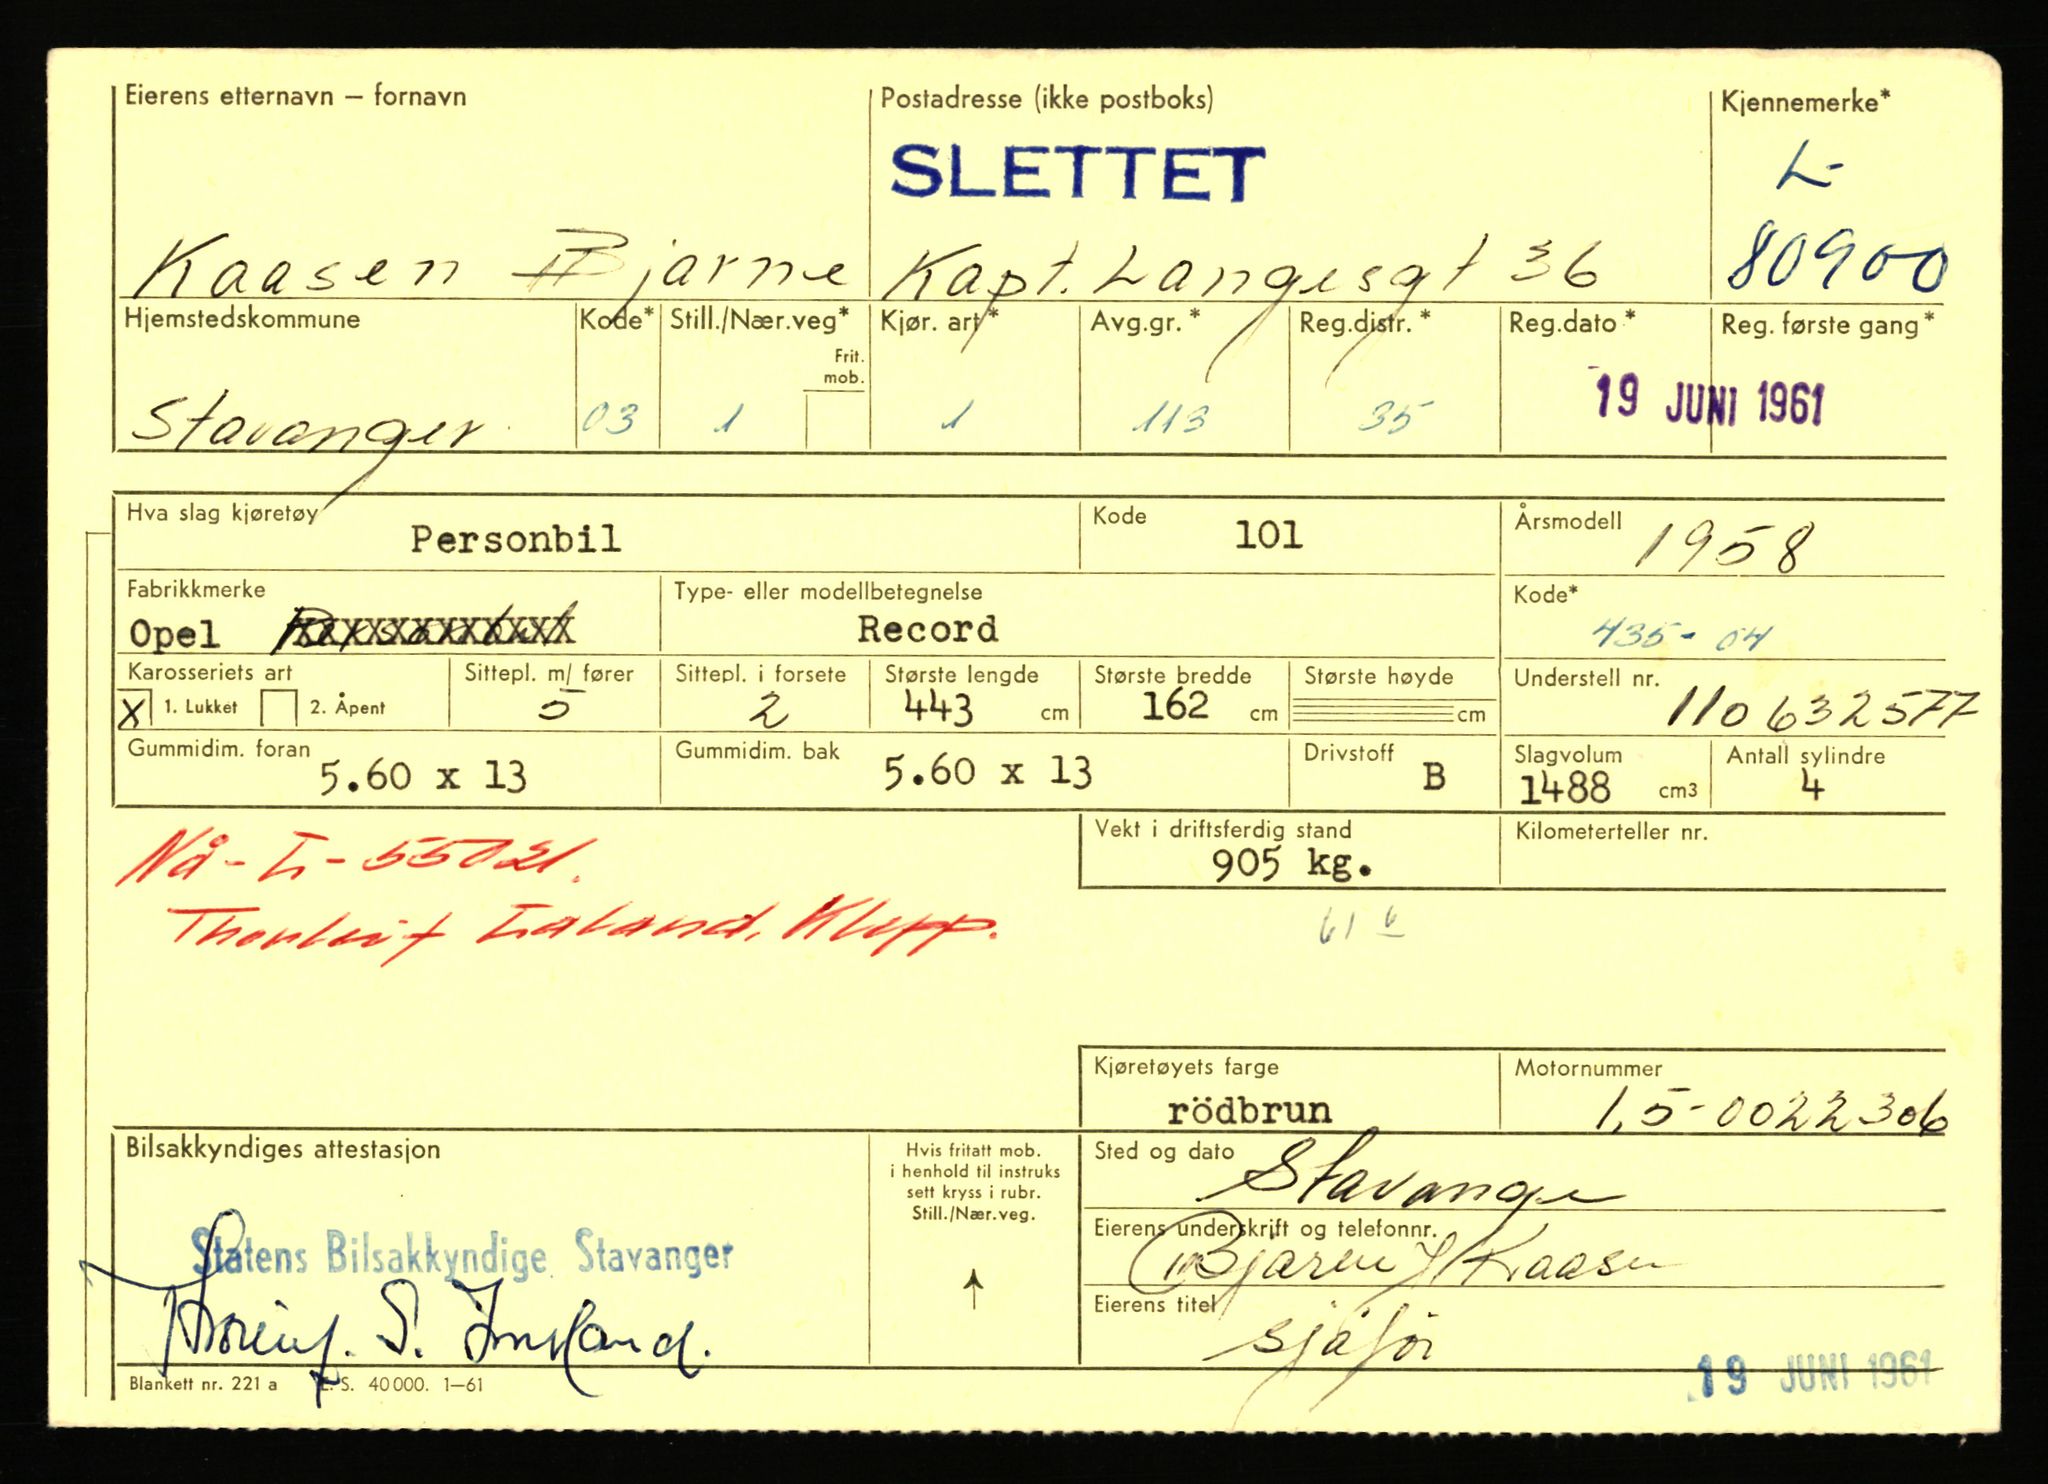 Eierens etternavn – fornavn
Postadresse (ikke postboks)
Kjennemerke*
SLETTET
L-
Kaasen Bjarne
Kapt. Langesgt 36
80900
Hjemstedskommune
Kode*
Still./Nær.veg*
Frit. mob.
Kjør. art*
Avg.gr.*
Reg.distr.*
Reg.dato*
Reg. første gang*
Stavanger
03
1
1
113
35
19 JUNI 1961
Hva slag kjøretøy
Personbil
Kode
101
Årsmodell
1958
Fabrikkmerke
Opel
Type- eller modellbetegnelse
Record
Kode*
435-04
Karosseriets art
X 1. Lukket 2. Åpent
Sittepl. m/ fører
5
Sittepl. i forsete
2
Største lengde
443 cm
Største bredde
162 cm
Største høyde
cm
Understell nr.
110632577
Gummidim. foran
5.60 x 13
Gummidim. bak
5.60 x 13
Drivstoff
B
Slagvolum
1488 cm3
Antall sylindre
4
Nå - L - 55021.
Vekt i driftsferdig stand
905 kg.
Kilometerteller nr.
Klepp.
61 6
Kjøretøyets farge
rödbrun
Motornummer
1,5-0022306
Bilsakkyndiges attestasjon
Hvis fritatt mob.
i henhold til instruks
sett kryss i rubr.
Still./Nær.veg.
Sted og dato
Stavanger
Statens Bilsakkyndige Stavanger
Eierens underskrift og telefonnr.
Bjarne J Kaasen
Eierens titel
sjåfør
19 JUNI 1961
Blankett nr. 221 a E. S. 40 000. 1–61